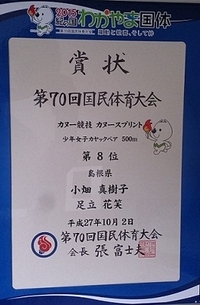 2015 紀の国わかやま国体
躍動と歓喜、そして絆
賞状
第70回国民体育大会
カヌー競技 カヌースプリント
少年女子カヤックペア 500m
第8位
島根県
小畑 真樹子
足立 花笑
平成27年10月2日
第70回国民体育大会
会長 張富士夫